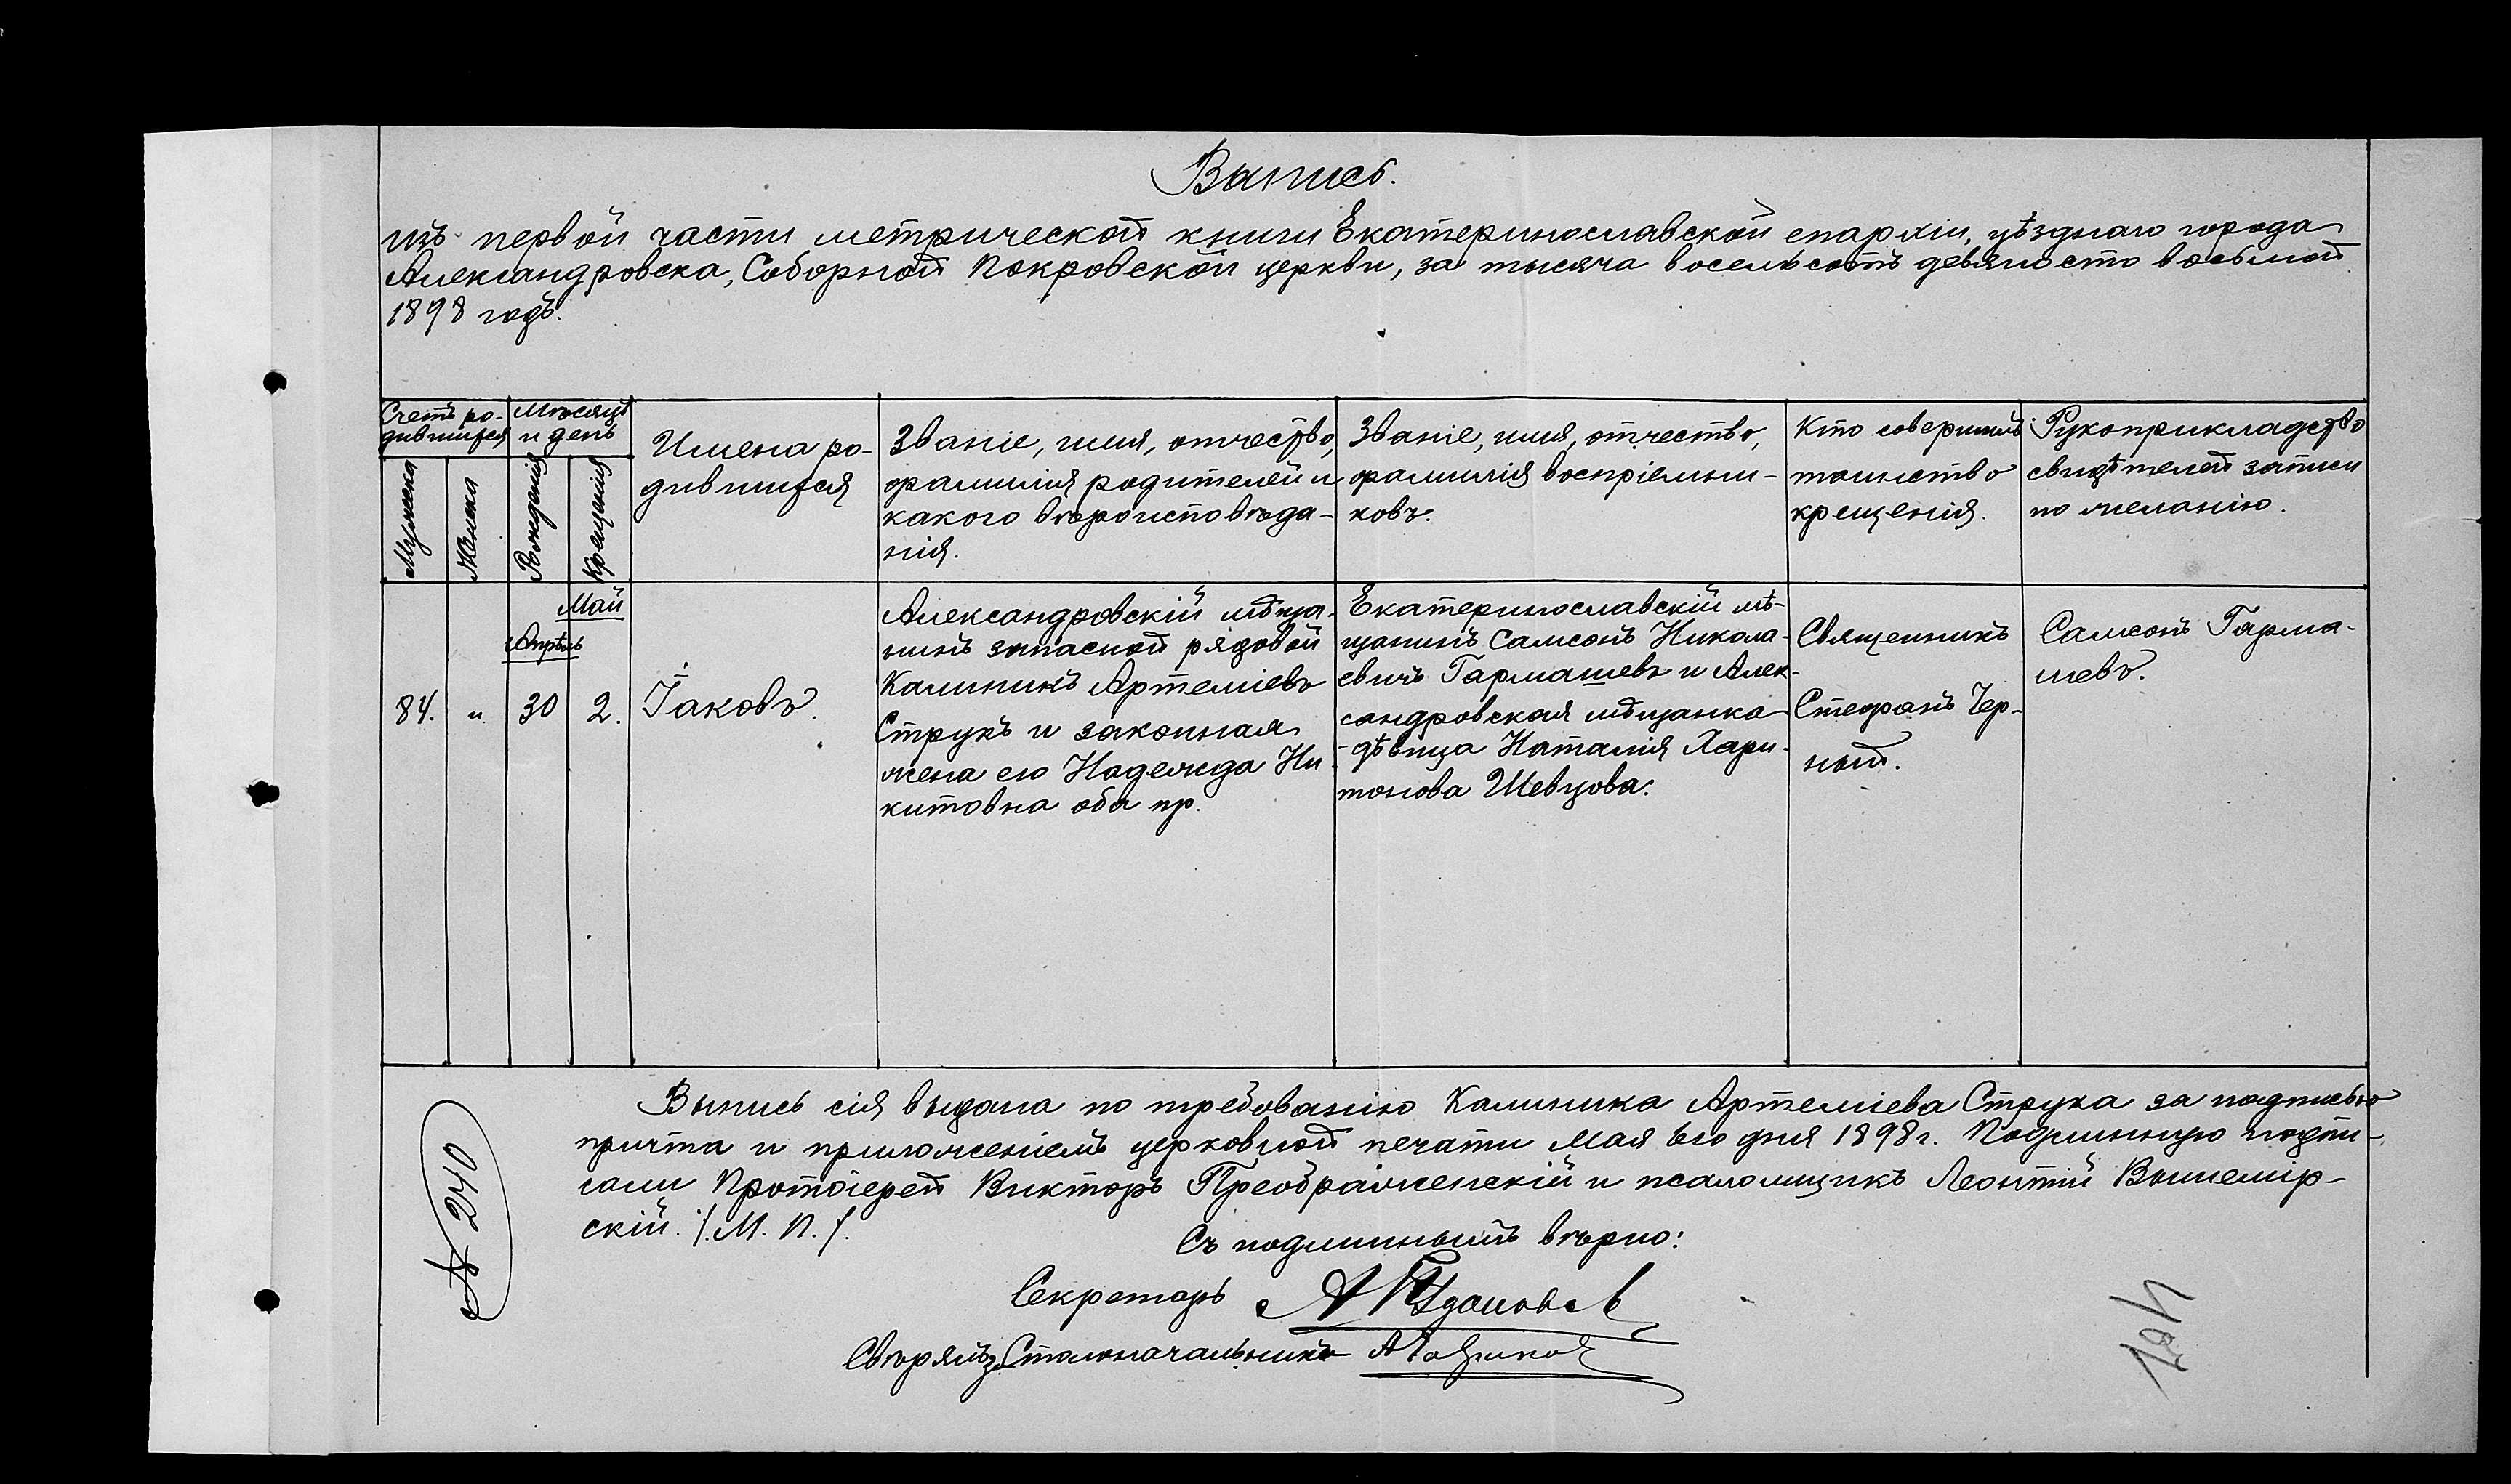 Выпись.
изъ первой части метрической книги Екатеринославской епархіи, уѣзднаго города
Александровска, Соборной Покровской церкви, за тысяча восемьсотъ девяносто восьмой
1898 годъ.
Счетъ ро-
дившихся
Мужеска
Женска
Мѣсяцъ
и день
Рожденія
Крещенія
Имена ро-
дившихся
Званіе, имя, отчество,
фамилія родителей и
какого вѣроисповѣда-
нія.
Званіе, имя, отчество,
фамилія воспріемни-
ковъ.
Кто совершилъ
таинство
крещенія.
Рукоприкладство
свидѣтелей записи
по желанію.
Май
Апрѣль
84. " 30 2.
Іаковъ.
Александровскій мѣща-
нинъ запасной рядовой
Калиникъ Артеміевъ
Струкъ и законная
жена его Надежда Ни-
китовна оба пр.
Екатеринославскій мѣ-
щанинъ Самсонъ Никола-
евичъ Гармашевъ и Алек-
сандровская мѣщанка
-дѣвица Наталія Хари-
тонова Шевцова.
Священникъ
Стефанъ Чер-
ный.
Самсонъ Гарма-
шевъ.
Выпись сія выдана по требованію Калиника Артеміева Струка за подписью
причта и приложеніемъ церковной печати мая 6го дня 1898 г. Подлинную подпи-
сали Протоіерей Викторъ Преображенскій и псаломщикъ Леонтій Вышемір-
скій. /. М. П. /.
Съ подлиннымъ вѣрно:
Секретарь
Свѣрялъ: Столоначальникъ
№ 240